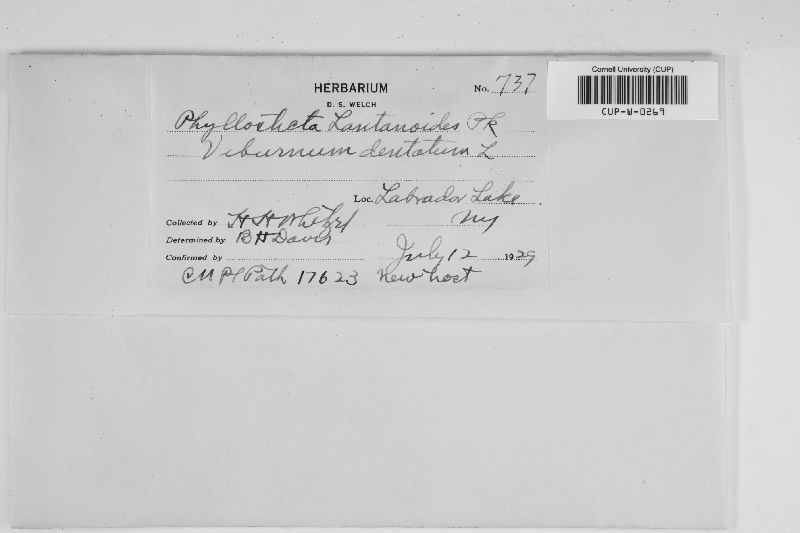 Cornell University (CUP)
CUP-W-0269
HERBARIUM
No. 737
D. S. WELCH
Phyllosticta Lantanoides Pk
Viburnum dentatum L
Loc. Labrador Lake
NY
Collected by H H Whetzel
Determined by B H Davis
Confirmed by
July 12 1929
CU Pl Path 17623 New host